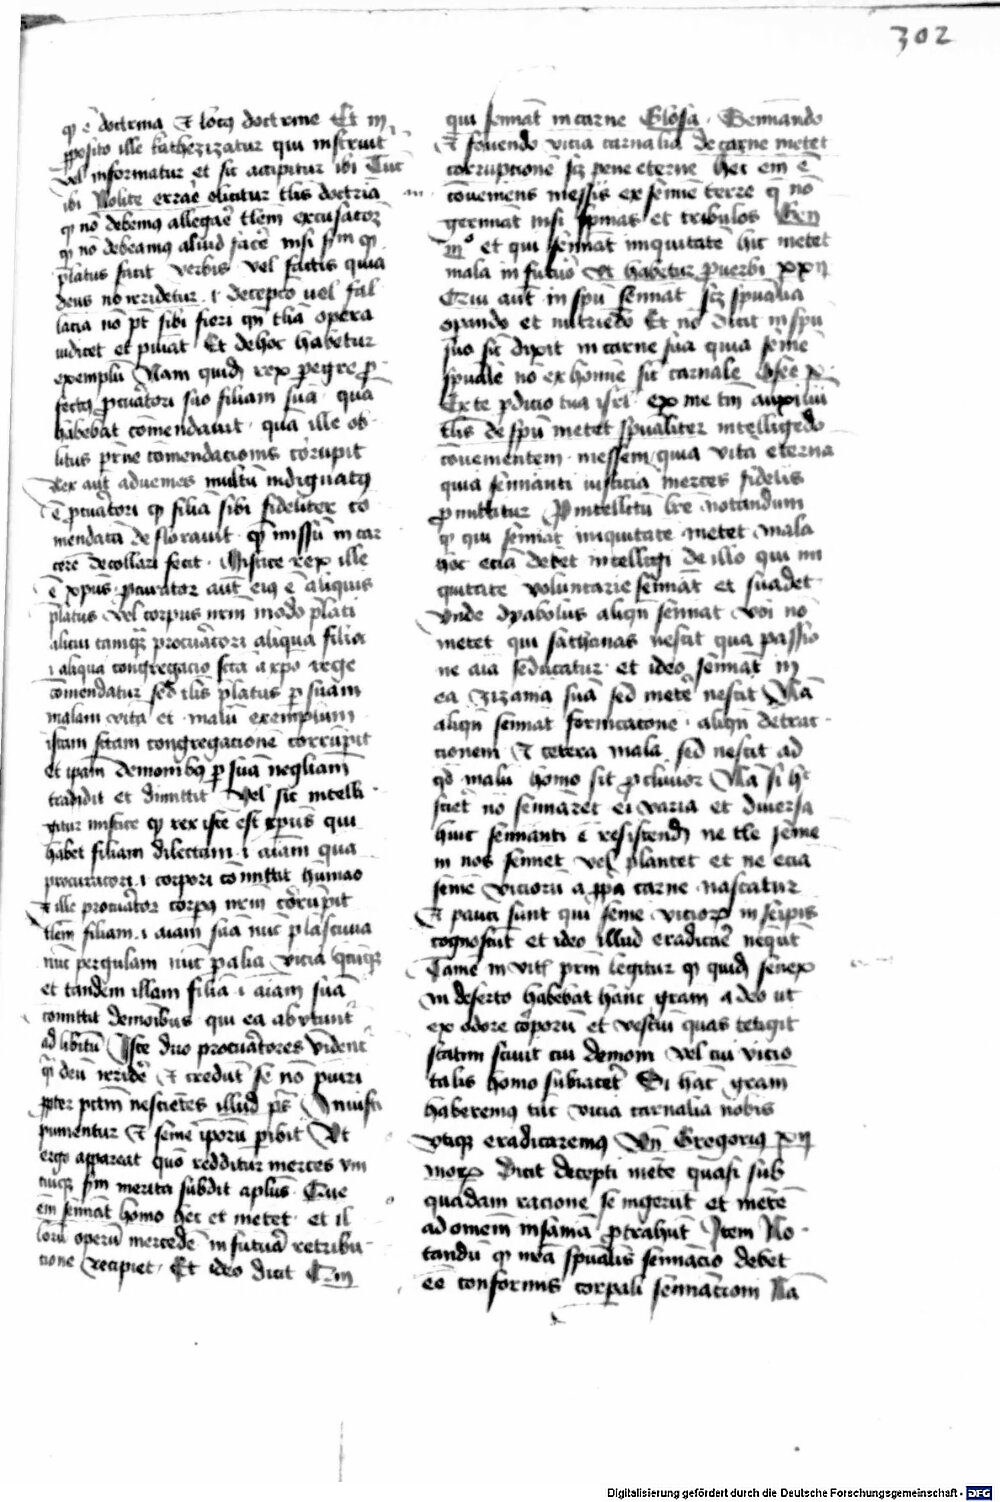 302
qͥ ē doctrina ⁊ locꝰ doctrine Et in
ꝓposito ille kathezizatur qui instruit᷑
vel informatur et sic accipitur ibi Tūc
ibi Nolite errare elicitur tlis doctria
qͥ nō debemꝰ allegaē tlem excusatōꝫ
qͥ nō debeamꝰ aliud facē nisi scḋm qͥ
p̄latus facit verbis vel factis quia
deus nō irridetur .i. decepcō vel fal
lacia nō pt̄ sibi fieri qn̄ tlia opera
iudicet et puniat Et de hoc habetur
exemplū Nam quidā rex peregre ꝓ
fectꝰ ꝓcuratori suo filiam suā quā
habebat comendauit quā ille ob-
litus pr̄ne cōmendacionis corrupit
Rex aut̄ adueniēs multū indignatꝰ
ē ꝓcuratori qͥ filiā sibi fideliter cō
mendatā deflorauit qͥ missū in car
cerē decollari fecit Mistice rex ille
ē xp̄us ꝓcurator aut̄ eiꝰ ē aliquis
p̄latus vel corpus nr̄m modo p̄lati
alicui tamqͣꝫ procuratori aliqua filia
.i. aliqua congregacio sc̄ta a xp̄o rege
cōmendatur sed ille p̄latus ꝑ suam
malam vitā et malū exemplum
istam sc̄tam congregacionē corrupit
et ip̄am demonibꝰ ꝑ suā negliḡam
tradidit et dimittit Vel sic intelli-
gitur mistice qͥ rex iste est xp̄us qui
habet filiam dilectam .i. aīam quā
procuratori .i. corpori cōmittit humāo
⁊ ille procurator corpꝰ nr̄m corrūpit
tlem filiam .i. aīam suā nūc ꝑ lasciuia
nūc ꝑ gulam nūc ꝑ alia vicia
et tandem illam filiā .i. aīam suā
cōmittit demoībus qui eā abducūt
ad libitū Iste duo procuratores vident᷑
qͥ deū irridē ⁊ credūt se nō puīri
ꝓpter pctm̄ nescientes illud ps̄
pumentur ⁊ semē ip̄orū ꝑibit Vt
ergo appareat quō redditur merces vni
cuiqꝫ scḋm merita subdit aplus Que
em̄ semīat homo hec et metet et il
lorū operū mercedē in futura retribu-
cione recipiet Et ideo dicit Qm̄
qui semīat in carne Glosa Semīando
⁊ fouendo vicia carnalia de carne metet
corrupcionē scꝫ pene eterne hec em̄ ē
cōueniens messis ex semīe terre qͥ nō
germīat nisi spinas et tribulos Gen̄
iiiº et qui semīat iniquitatē hic metet
mala in futuro Vt habetur prouerbi xxii
Qui aut̄ in sp̄u semīat scꝫ sp̄ualia
opando et nutriēdo Et nō dicit in sp̄u
suo sic dixit in carne sua quia semē
sp̄uale nō ex homīe sic carnale Osee x
Ex te ꝑdicio tua isrl̄ ex me tm̄ auxiliū
tlis de sp̄u metet sp̄ualiter intelligēdo
cōuenientem messem quia vitā eterna
quia semīanti iusticiā merces fidelis
ꝓmittitur Pro intellectu lr̄e notandum
qͥ qui semīat iniquitatē metet mala
hoc eciā debet intelligi de illo qui ini
quitatē voluntarie semīat et suadet
Vnde dyabolus aliqn̄ semīat vbi nō
metet qui sathanas nescit qua passio
ne aīa seducatur et ideo semīat in
ea zizania sua sed metē nescit Nā
aliqn̄ semīat fornicacionē aliqn̄ detrac-
cionem ⁊ cetera mala sed nescit ad
qd̄ malū homo sit ꝓcliuior Nā si hͦ
sciret nō semīaret ei varia et diuersa
huic semīanti ē resistendū ne tle semē
in nos semīet vel plantet et ne eciā
semē vicioꝝ a ꝓpa carne nascatur
⁊ pauci sunt qui semē vicioꝝ in seipis
cognoscūt et ideo illud eradicaē nequūt
Tamē in vitis pr̄m legitur qͥ quidā senex
in deserto habebat hanc gram a deo ut
ex odore corporū et vestiū quas tetigit
statim sciuit cui demoni vel cui vicio
talis homo subiacet Si hāc gram
haberemꝰ tūc vicia carnalia nobis
vtiqꝫ eradicaremꝰ Vn̄ Gregoriꝰ xii
moꝝ Dicit decepti mente quasi sub
quadam racione se ingerūt et mentē
ad omēm insaniā ꝓtrahūt Item No-
tandū qͥ nr̄a sp̄ualis semīacio debet
eē conformis corporali semīacioni Nā
Digitalisierung gefördert durch die Deutsche Forschungsgemeinschaft - DFG